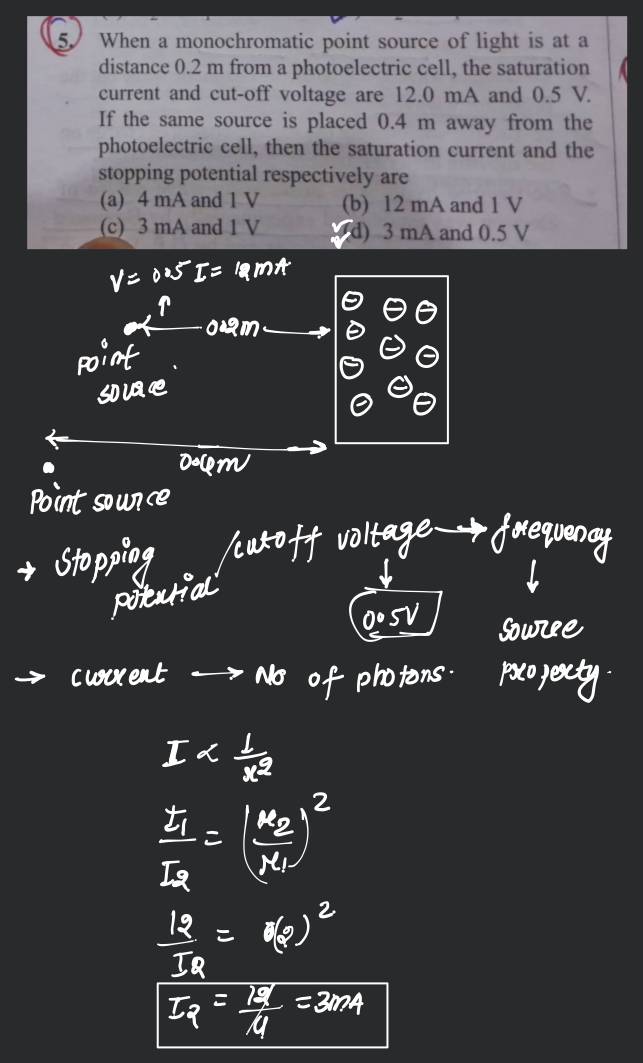 5. When a monochromatic point source of light is at a
distance 0.2 m from a photoelectric cell, the saturation
current and cut-off voltage are 12.0 mA and 0.5 V.
If the same source is placed 0.4 m away from the
photoelectric cell, then the saturation current and the
stopping potential respectively are
(a) 4 mA and 1 V (b) 12 mA and 1 V
(c) 3 mA and 1 V (d) 3 mA and 0.5 V
V = 0.5 I = 12mA
0.2m
point
source
0.4m
Point source
→ Stopping potential / cutoff voltage → frequency
↓ ↓
0.5V source
property.
→ current → No of photons.
I ∝ 1/x²
I₁/I₂ = (r₂/r₁)²
12/I₂ = (2)²
I₂ = 12/4 = 3mA